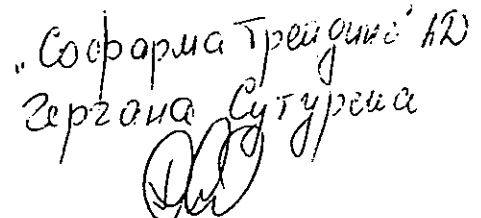 „Софарма Трейдинг" АД
Гергана Сутурена